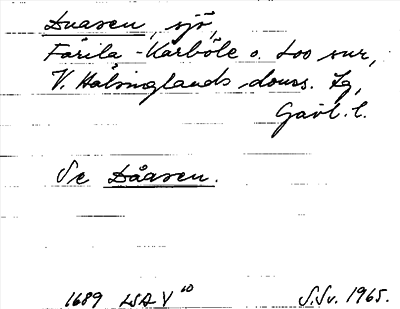 Duasen, sjö,
Färila-Kårböle o. Loo snr,
V. Hälsinglands doms. tg,
Gävl. l.
Se Dåasen.
1689 LSA V 10 S.Sv. 1965.